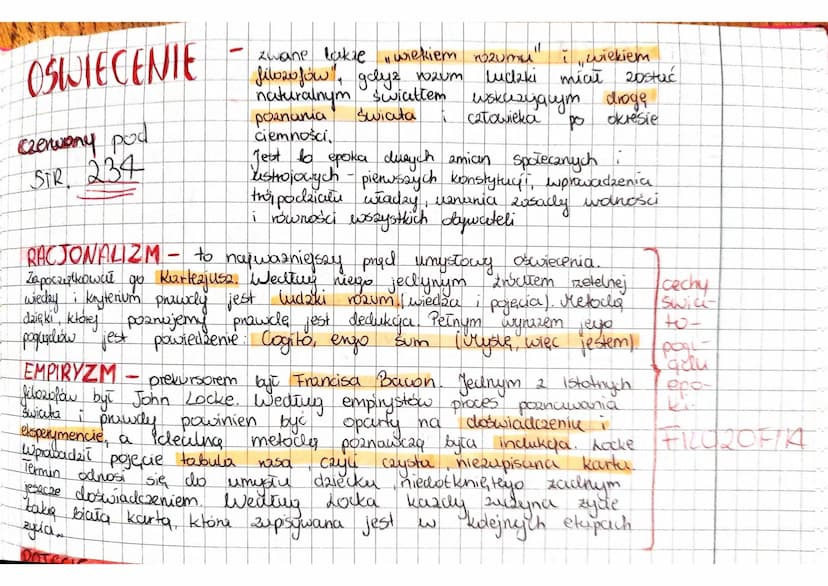 OŚWIECENIE - zwane także „wiekiem rozumu" i „wiekiem
filozofów", gdyż rozum ludzki miał zostać
naturalnym światłem wskazującym drogę
poznania świata i człowieka po okresie
ciemności.
czerwony pod
STR. 234
Jest to epoka dużych zmian społecznych i
ustrojowych - pierwszych konstytucji, wprowadzenia
trójpodziału władzy, uznania zasady wolności
i równości wszystkich obywateli
RACJONALIZM - to najważniejszy prąd umysłowy oświecenia.
Zapoczątkował go Kartezjusz. Według niego jedynym źródłem rzetelnej
wiedzy i kryterium prawdy jest ludzki rozum (wiedza i pojęcia). Metodą
dzięki, której poznajemy prawdę jest dedukcja. Pełnym wyrazem jego
poglądów jest powiedzenie: Cogito, ergo sum (Myślę, więc jestem)
EMPIRYZM - prekursorem był Francisa Bacon. Jednym z istotnych
filozofów był John Locke. Według empirystów proces poznawania
świata i prawdy powinien być oparty na doświadczeniu i
eksperymencie, a idealną metodą poznawczą była indukcja. Locke
wprowadził pojęcie tabula rasa, czyli czysta, niezapisana karta.
Termin odnosi się do umysłu dziecku, niedotkniętego żadnym
jeszcze doświadczeniem. Według Locka każdy zaczyna życie
taką białą kartą, która zapisywana jest w kolejnych etapach
życia..
cechy
świa-
to-
poglą-
du
epo-
ki-
FILOZOFIA